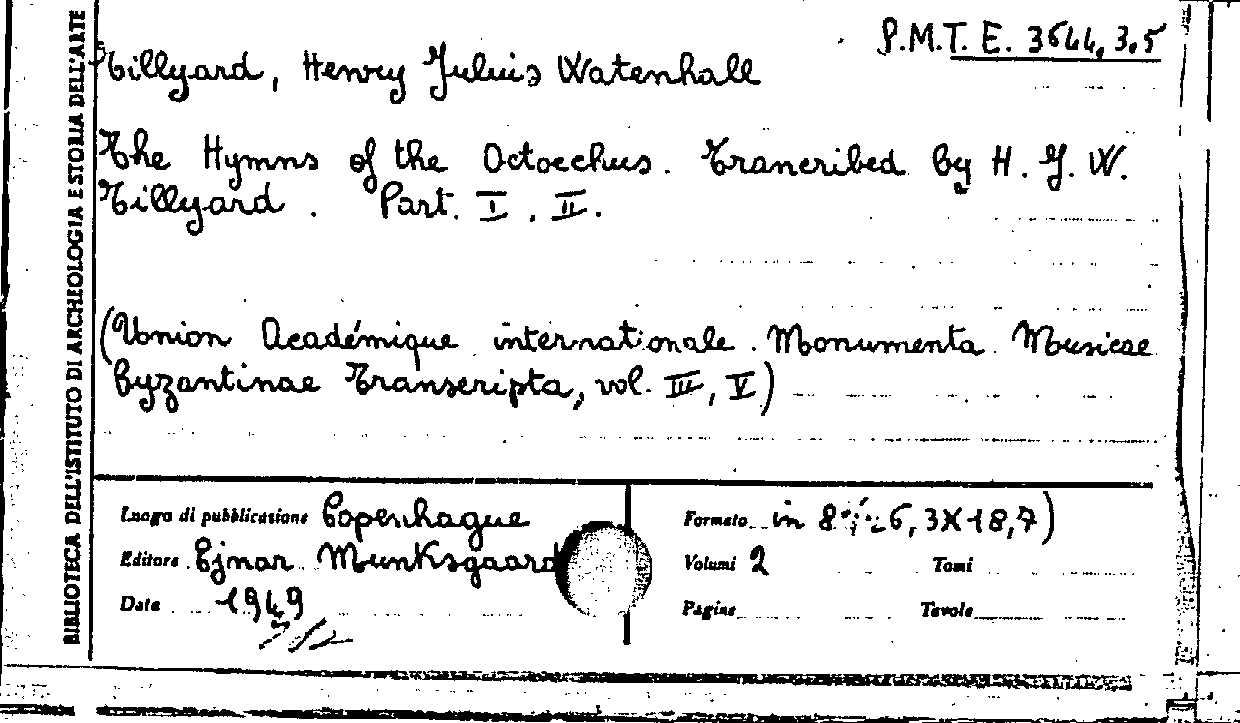 P.M.T.E. 3644, 3.5
Tillyard, Henry Julius Watenhall
The Hymns of the Octoechus. Trancribed by H. J. W.
Tillyard. Part. I, II.
(Union Académique internationale. Monumenta Musicae
Byzantinae Transcripta, vol. III, V)
BIBLIOTECA DELL'ISTITUTO DI ARCHEOLOGIA E STORIA DELL'ARTE
Luogo di pubblicazione Copenhague
Editore Ejnar Munksgaard
Data 1949
Formato in 8 6,3X18,7)
Volumi 2 Tomi
Pagine Tavole